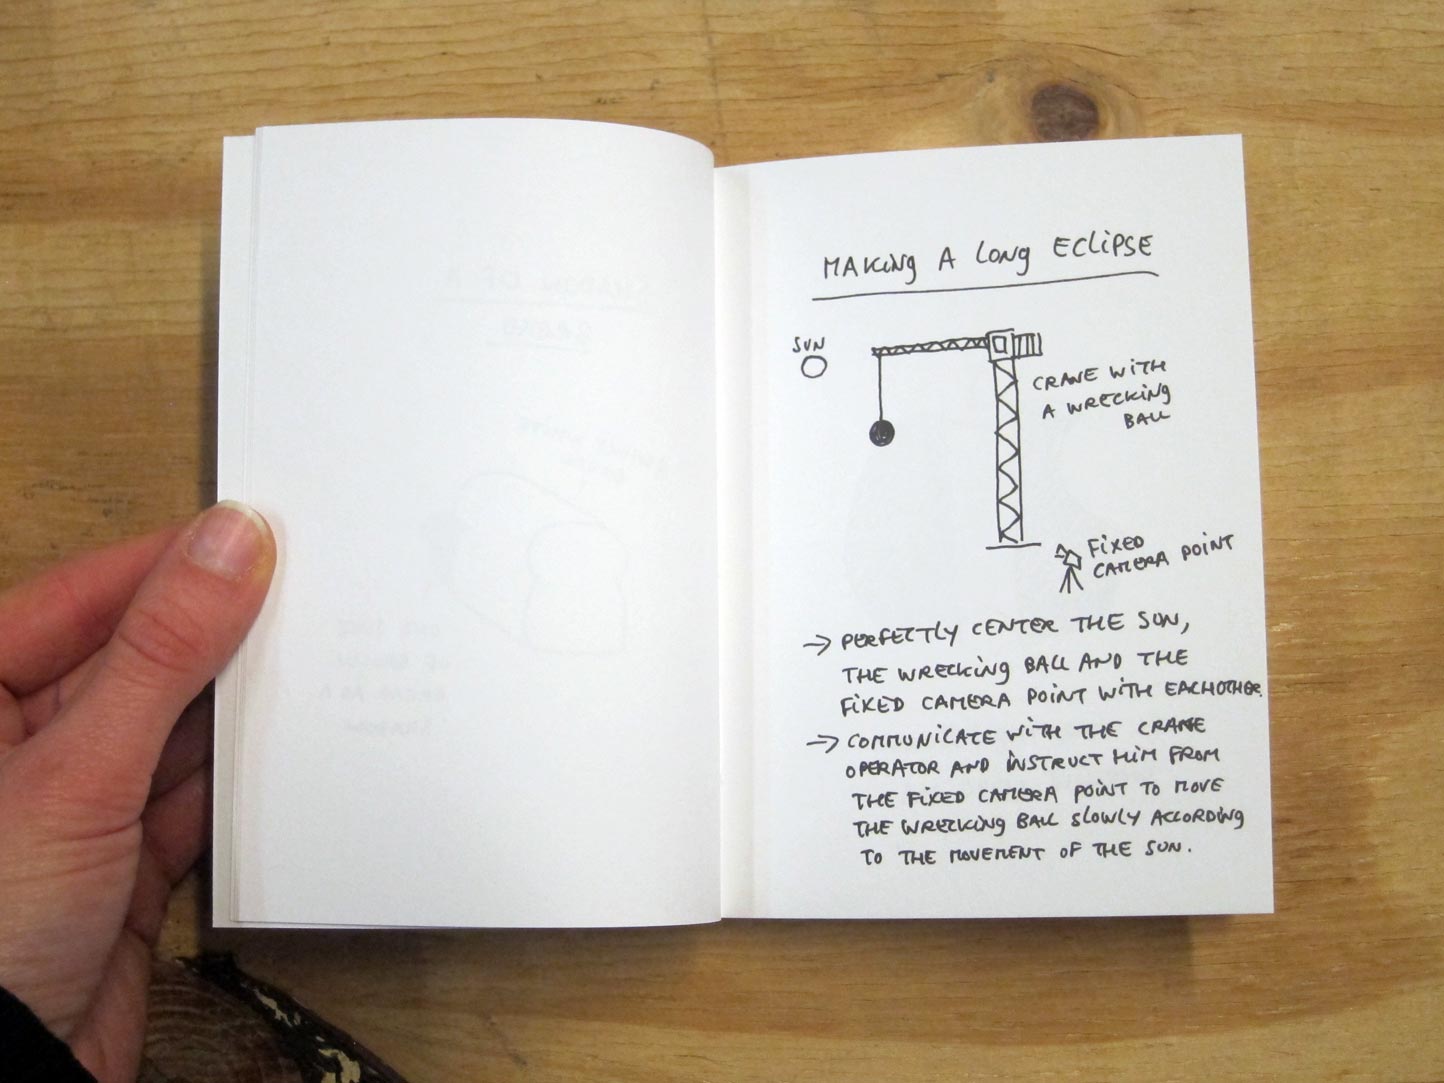 MAKING A LONG ECLIPSE
SUN
CRANE WITH
A WRECKING
BALL
FIXED
CAMERA POINT
→ PERFECTLY CENTER THE SUN,
THE WRECKING BALL AND THE
FIXED CAMERA POINT WITH EACHOTHER.
→ COMMUNICATE WITH THE CRANE
OPERATOR AND INSTRUCT HIM FROM
THE FIXED CAMERA POINT TO MOVE
THE WRECKING BALL SLOWLY ACCORDING
TO THE MOVEMENT OF THE SUN.